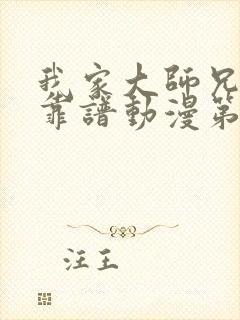 我家大師兄
靠譜動漫第
汪王